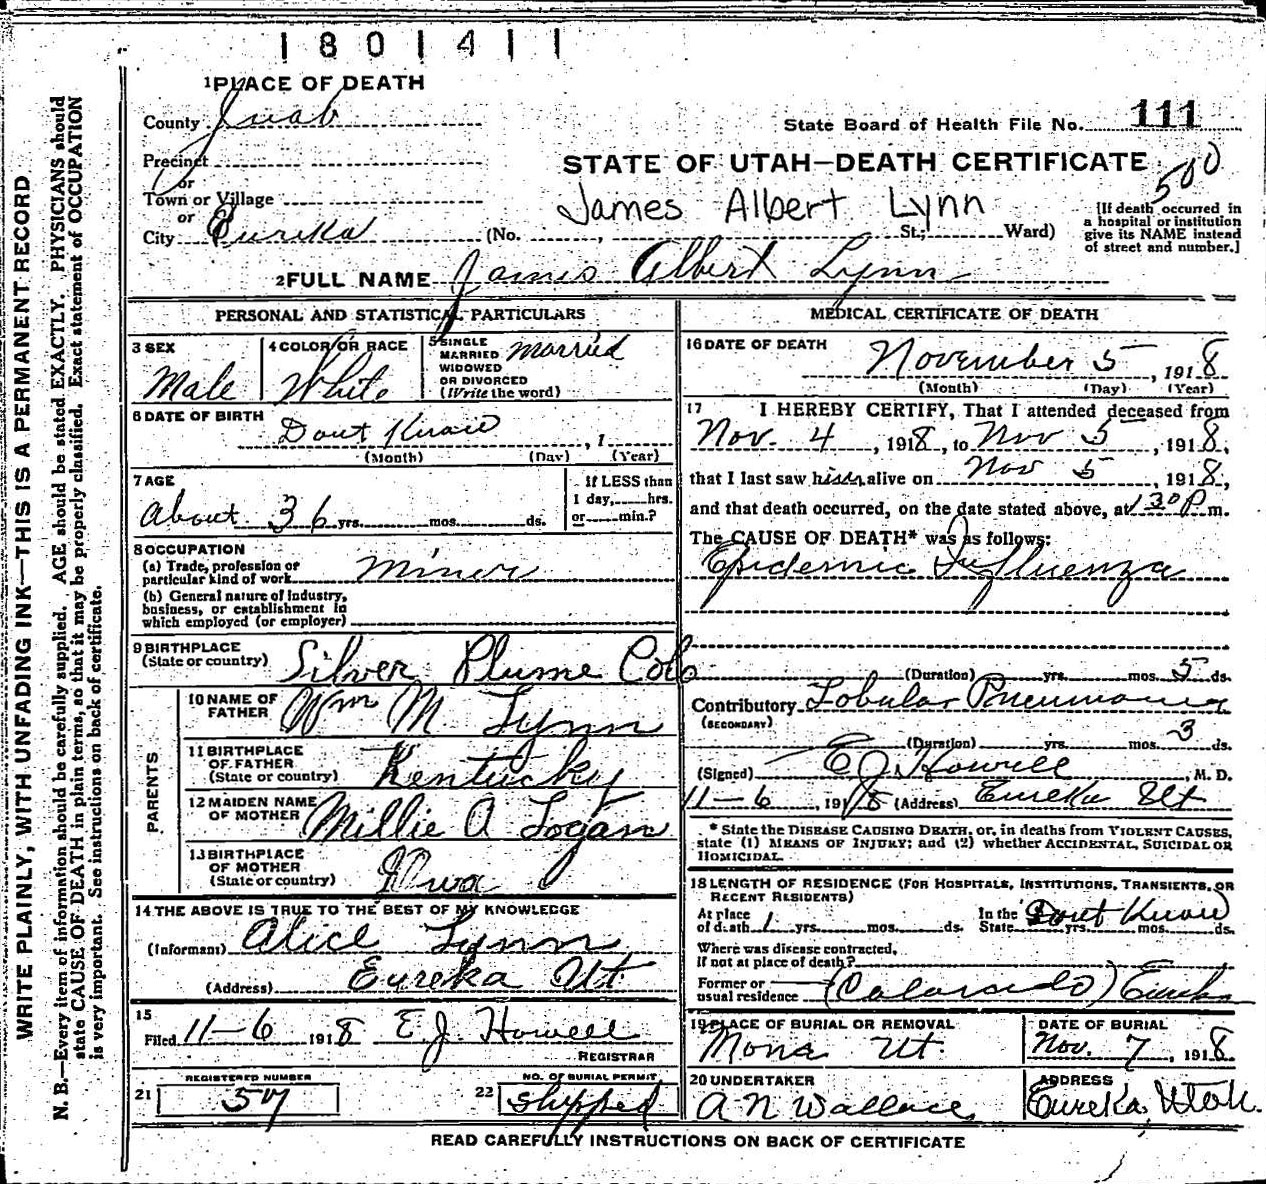 1801411
1 PLACE OF DEATH
County Juab
State Board of Health File No. 111
Precinct
or
STATE OF UTAH—DEATH CERTIFICATE
500
Town or Village
or
James Albert Lynn
City Eureka (No. , St.; Ward)
[If death occurred in
a hospital or institution
give its NAME instead
of street and number.]
2 FULL NAME James Albert Lynn
PERSONAL AND STATISTICAL PARTICULARS
3 SEX
Male
4 COLOR OR RACE
White
5 SINGLE
MARRIED
WIDOWED
OR DIVORCED
(Write the word)
Married
6 DATE OF BIRTH
Dont Know , 1
(Month) (Day) (Year)
7 AGE
About 36 yrs. mos. ds.
If LESS than
1 day, hrs.
or min.?
8 OCCUPATION
(a) Trade, profession or
particular kind of work Miner
(b) General nature of industry,
business, or establishment in
which employed (or employer)
9 BIRTHPLACE
(State or country) Silver Plume Colo
PARENTS
10 NAME OF
FATHER Wm M. Lynn
11 BIRTHPLACE
OF FATHER
(State or country) Kentucky
12 MAIDEN NAME
OF MOTHER Millie A Logan
13 BIRTHPLACE
OF MOTHER
(State or country) Iowa
14 THE ABOVE IS TRUE TO THE BEST OF MY KNOWLEDGE
(Informant) Alice Lynn
(Address) Eureka Ut
15
Filed 11-6 1918 E J. Howell
REGISTRAR
REGISTERED NUMBER
21 57
NO. OF BURIAL PERMIT
22 shipped
MEDICAL CERTIFICATE OF DEATH
16 DATE OF DEATH
November 5 , 1918
(Month) (Day) (Year)
17 I HEREBY CERTIFY, That I attended deceased from
Nov. 4 , 1918, to Nov 5 , 1918,
that I last saw him alive on Nov 5 , 1918,
and that death occurred, on the date stated above, at 130 P m.
The CAUSE OF DEATH* was as follows:
Epidemic Influenza
(Duration) yrs. mos. 5 ds.
Contributory Lobular Pneumonia
(SECONDARY)
(Duration) yrs. mos. 3 ds.
(Signed) E J. Howell , M. D.
11-6 , 1918 (Address) Eureka Ut
* State the DISEASE CAUSING DEATH, or, in deaths from VIOLENT CAUSES,
state (1) MEANS OF INJURY; and (2) whether ACCIDENTAL, SUICIDAL OR
HOMICIDAL.
18 LENGTH OF RESIDENCE (FOR HOSPITALS, INSTITUTIONS, TRANSIENTS, OR
RECENT RESIDENTS)
At place
of death 1 yrs. mos. ds.
In the
State Dont Know yrs. mos. ds.
Where was disease contracted,
if not at place of death?
Former or
usual residence (Colorado) Eureka
19 PLACE OF BURIAL OR REMOVAL
Mona Ut.
DATE OF BURIAL
Nov. 7 , 1918
20 UNDERTAKER
A N Wallace
ADDRESS
Eureka, Utah.
READ CAREFULLY INSTRUCTIONS ON BACK OF CERTIFICATE
WRITE PLAINLY, WITH UNFADING INK—THIS IS A PERMANENT RECORD
N. B.—Every item of information should be carefully supplied. AGE should be stated EXACTLY. PHYSICIANS should
state CAUSE OF DEATH in plain terms, so that it may be properly classified. Exact statement of OCCUPATION
is very important. See instructions on back of certificate.